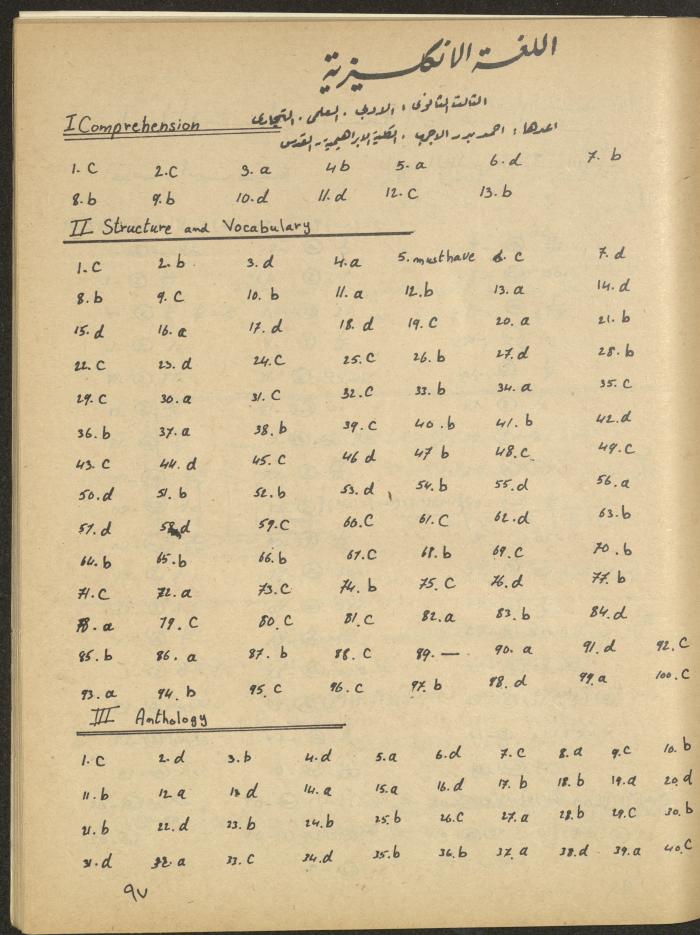 اللغة الانكليزية
الثالث الثانوي: الادبي. العلمي. التجاري
I Comprehension
اعدها: احمد بدر الاجرب. الكلية الابراهيمية-القدس
1. C 2. C 3. a 4 b 5. a 6. d 7. b
8. b 9. b 10. d 11. d 12. C 13. b
II Structure and Vocabulary
1. C 2. b 3. d 4. a 5. must have 6. C 7. d
8. b 9. C 10. b 11. a 12. b 13. a 14. d
15. d 16. a 17. d 18. d 19. C 20. a 21. b
22. C 23. d 24. C 25. C 26. b 27. d 28. b
29. C 30. a 31. C 32. C 33. b 34. a 35. C
36. b 37. a 38. b 39. C 40. b 41. b 42. d
43. C 44. d 45. C 46 d 47 b 48. C 49. C
50. d 51. b 52. b 53. d 54. b 55. d 56. a
57. d 58. d 59. C 60. C 61. C 62. d 63. b
64. b 65. b 66. b 67. C 68. b 69. C 70. b
71. C 72. a 73. C 74. b 75. C 76. d 77. b
78. a 79. C 80. C 81. C 82. a 83. b 84. d
85. b 86. a 87. b 88. C 89. — 90. a 91. d 92. C
93. a 94. b 95. C 96. C 97. b 98. d 99. a 100. C
III Anthology
1. C 2. d 3. b 4. d 5. a 6. d 7. C 8. a 9. C 10. b
11. b 12 a 13 d 14. a 15. a 16. d 17. b 18. b 19. a 20. d
21. b 22. d 23. b 24. b 25. b 26. C 27. a 28. b 29. C 30. b
31. d 32. a 33. C 34. d 35. b 36. b 37. a 38. d 39. a 40. C
٩٧